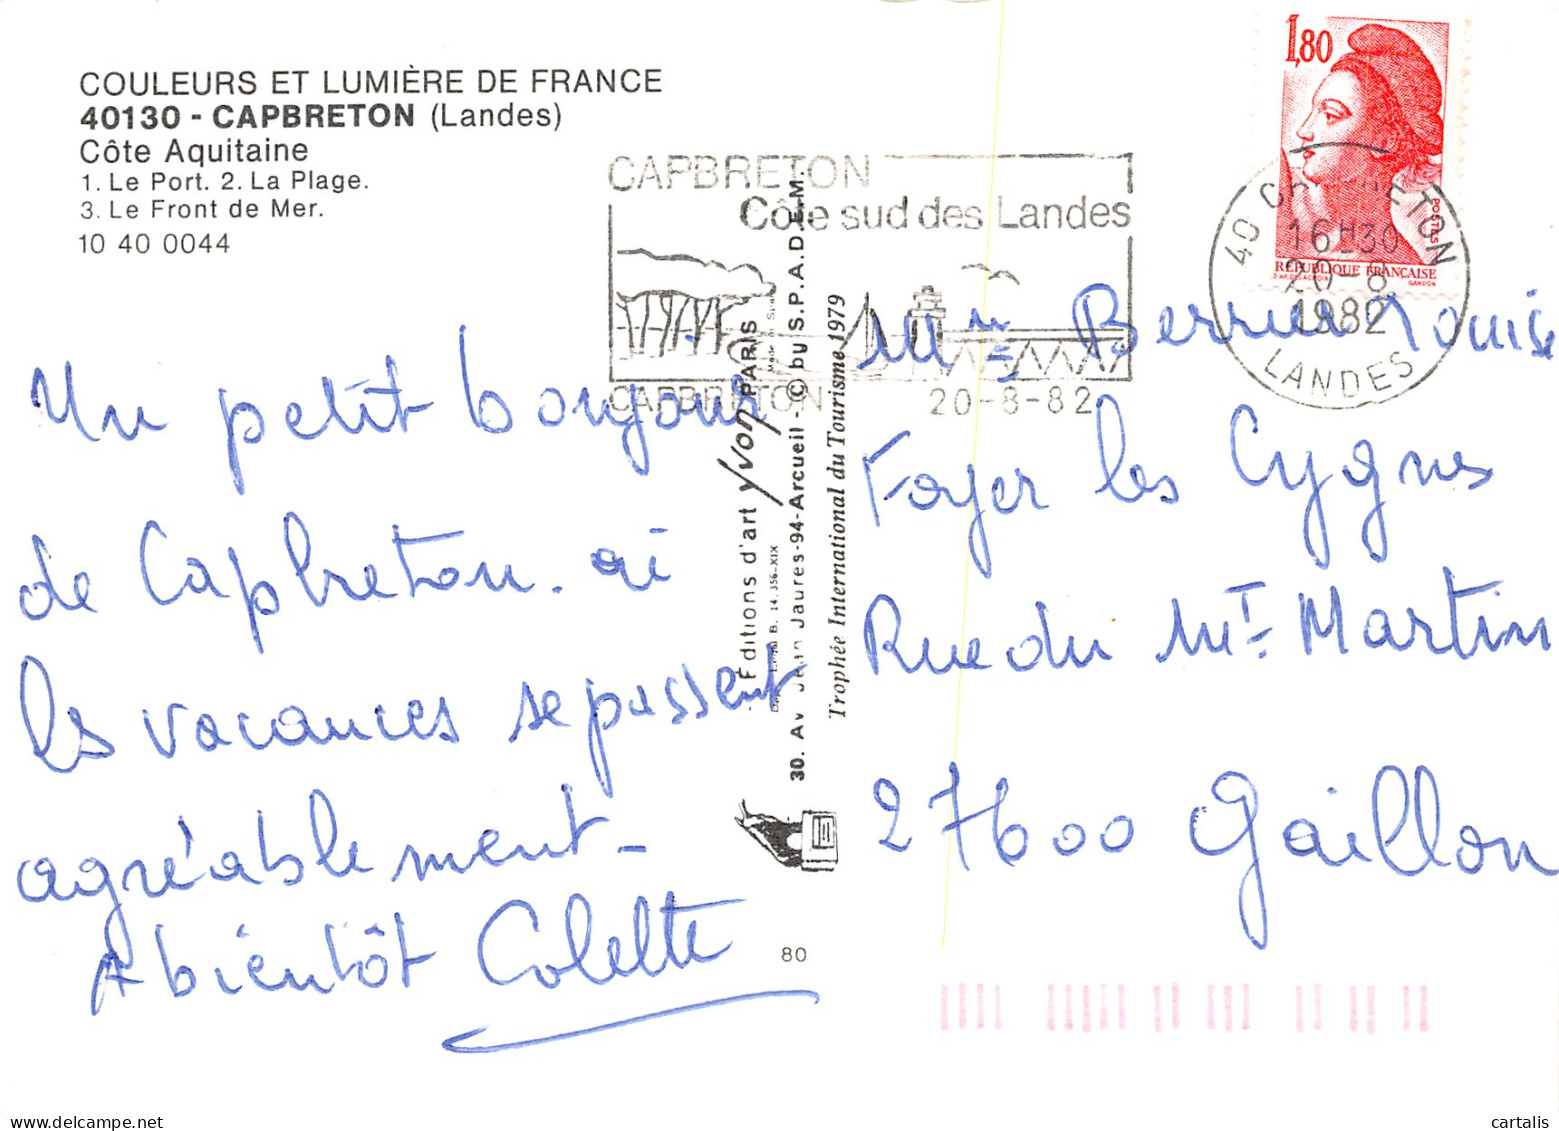 COULEURS ET LUMIÈRE DE FRANCE
40130 - CAPBRETON (Landes)
Côte Aquitaine
1. Le Port. 2. La Plage.
3. Le Front de Mer.
10 40 0044
Un petit bonjour
de Capbreton. ai
les vacances se passent
agréablement -
A bientôt Colette
CAPBRETON
Côte sud des Landes
CAPBRETON 20-8-82
- Éditions d'art yvon PARIS
Made in
14.356-XIX
30. Av Jean Jaures-94-Arcueil - © by S.P.A.D.E.M.
Trophée International du Tourisme 1979
80
1,80
POSTES
RÉPUBLIQUE FRANÇAISE
GANDON
40 CAPBRETON
16H30
20-8
1982
LANDES
Louise
Foyer les Cygnes
Rue du Mt Martin
27600 Gaillon
cartalis